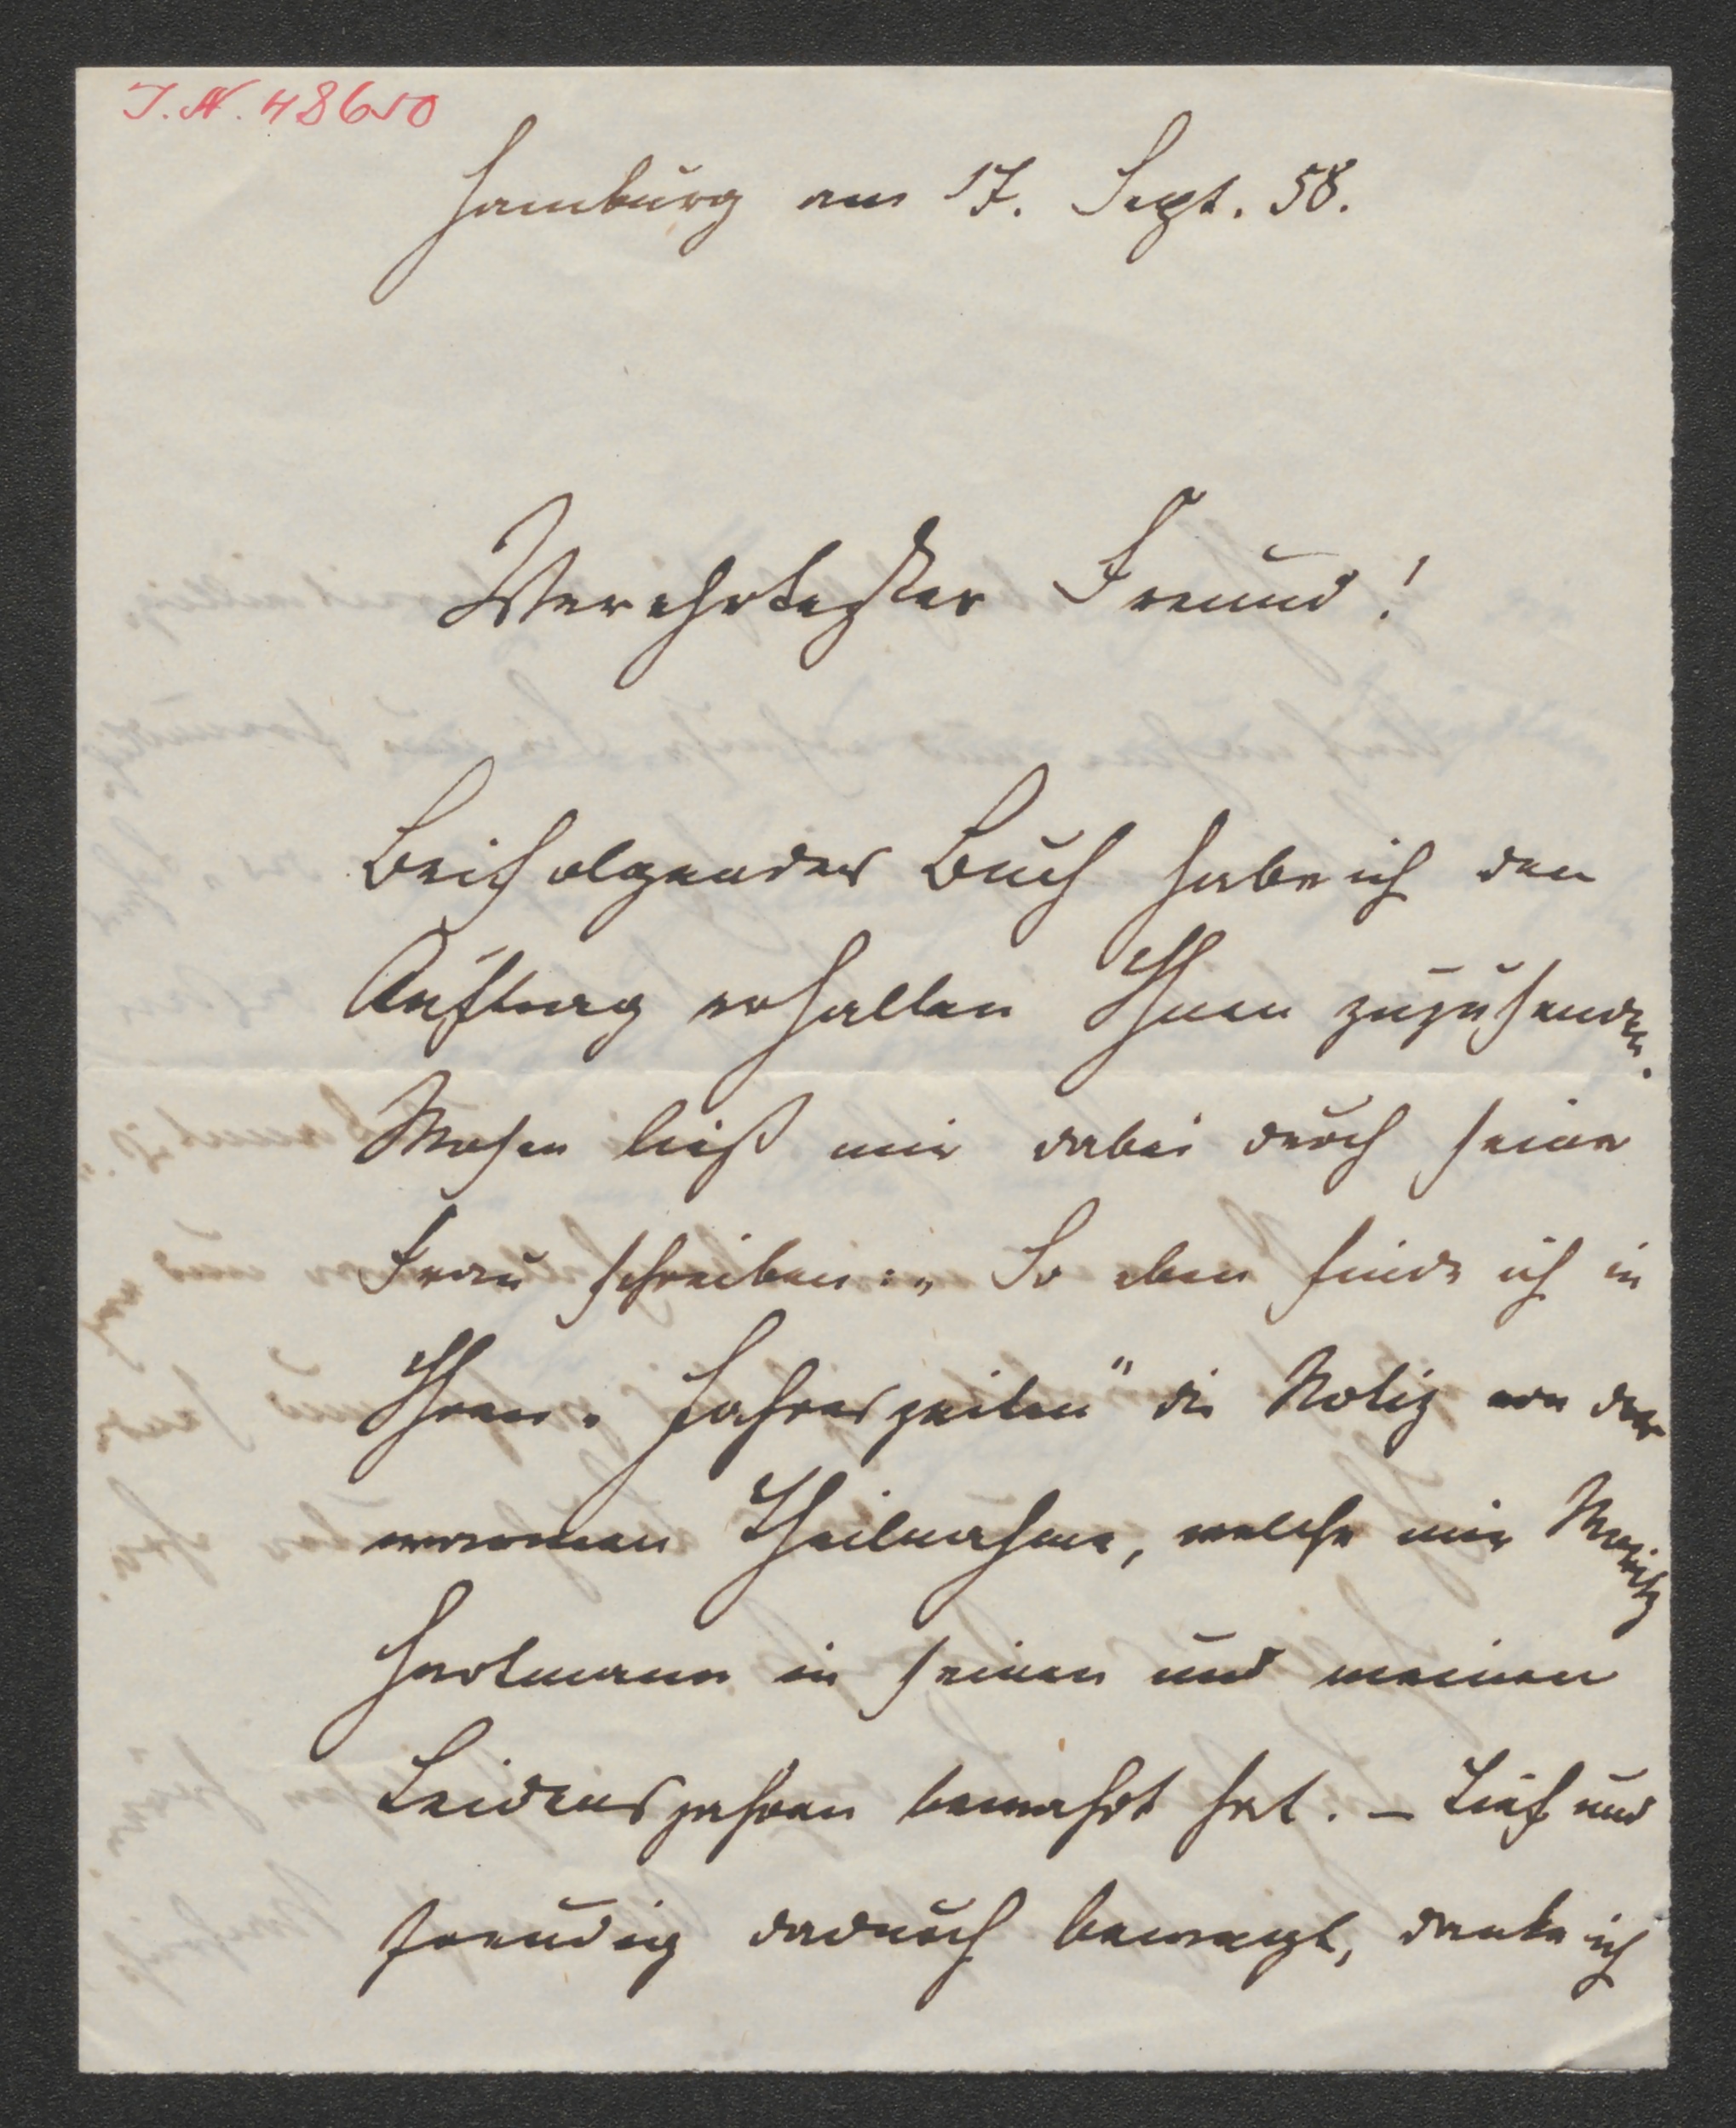 I.N. 48650
Hamburg am 17. Sept. 58.
Verehrtester Freund!
Beifolgendes Buch habe ich den
Auftrag erhalten Ihnen zuzusenden.
Mosen ließ mir dabei durch seine
Frau schreiben: „So eben finde ich in
Ihren „Jahreszeiten" die Notiz von der
warmen Theilnahme, welche mir Moritz
Hartmann in seinen und meinen
Leidensjahren bewahrt hat. — Tief und
freudig dadurch bewegt, danke ich